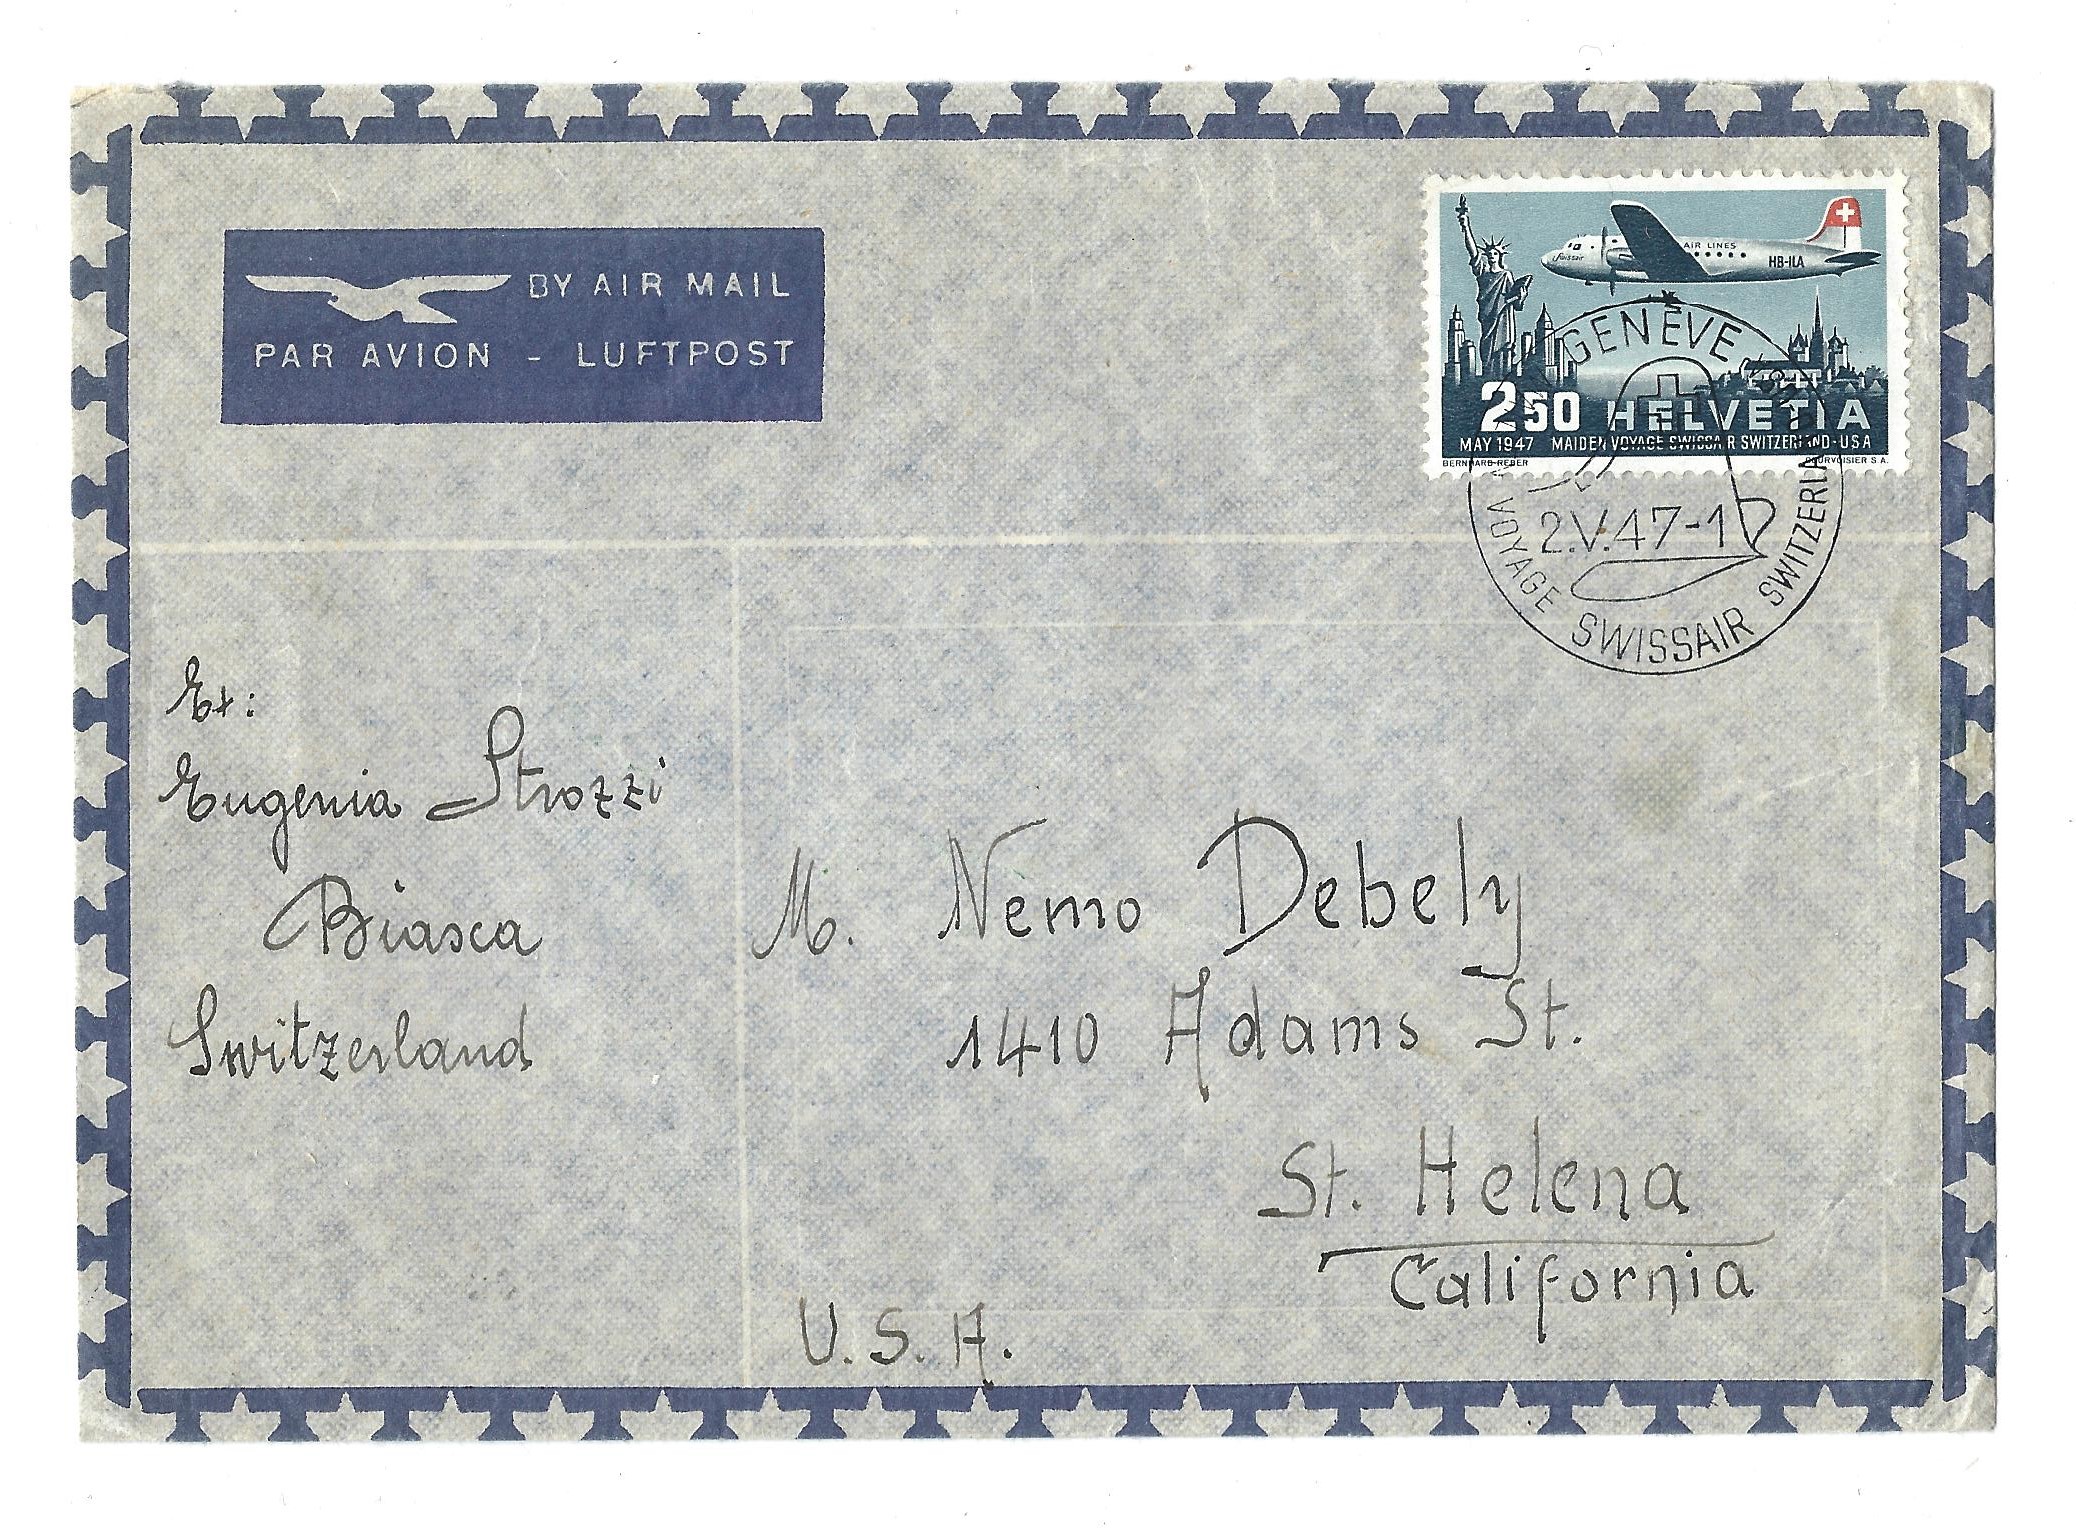 BY AIR MAIL
PAR AVION - LUFTPOST
Swissair
AIR LINES
HB-ILA
2.50 HELVETIA
MAY 1947 MAIDEN VOYAGE SWISSAIR SWITZERLAND-USA
BERNHARD REBER
COURVOISIER S.A.
GENÈVE
2.V.47-1
VOYAGE SWISSAIR SWITZERLAND
Ex:
Eugenia Strozzi
Biasca
Switzerland
M. Nemo Debely
1410 Adams St.
St. Helena
California
U.S.A.